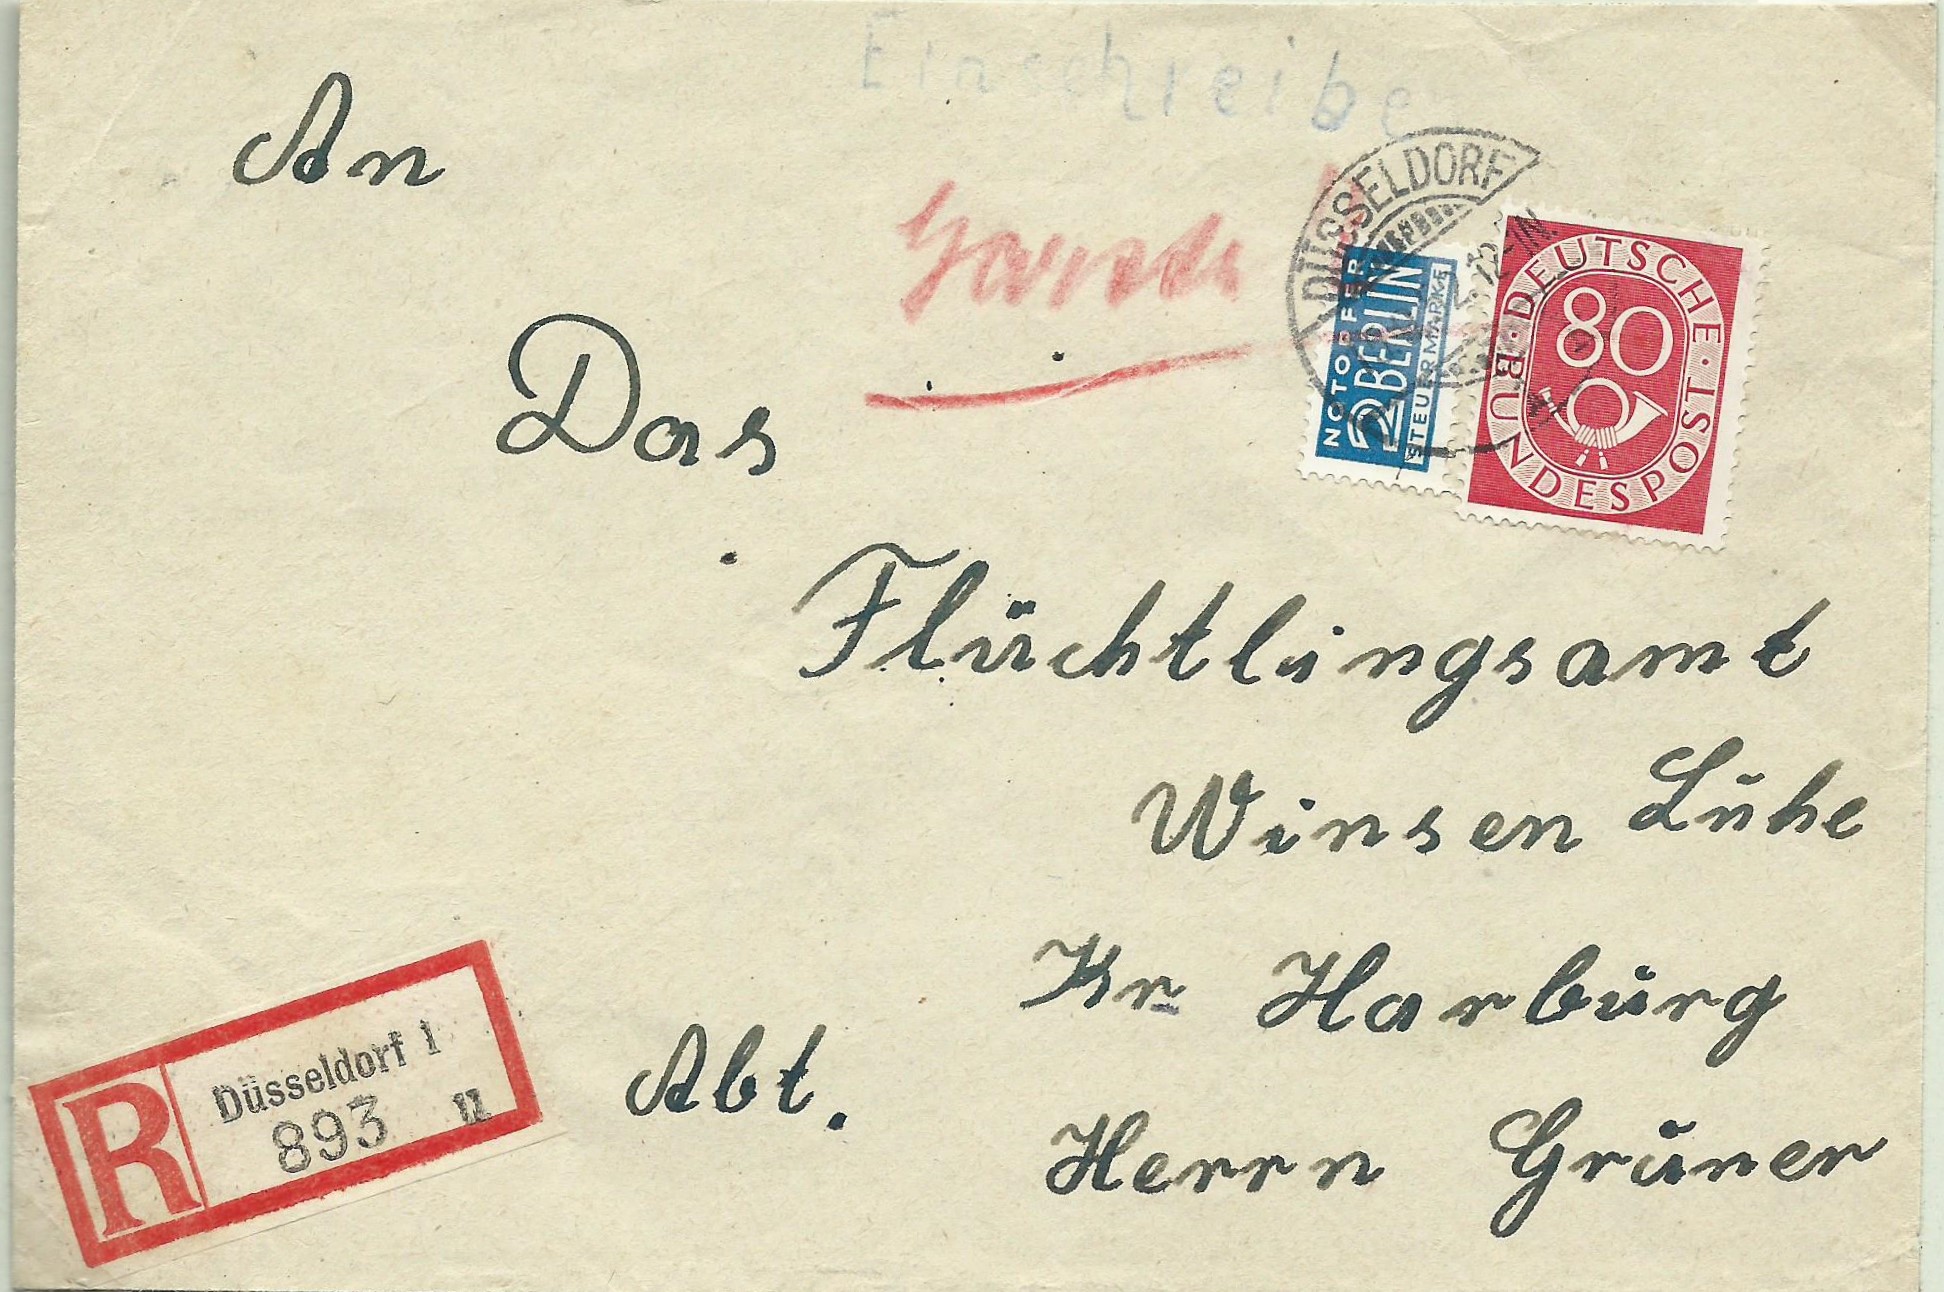 Einschreibe
An
DÜSSELDORF
NOTOPFER
2 BERLIN
STEUERMARKE
DEUTSCHE BUNDESPOST
80
Das
Flüchtlingsamt
Winsen Luhe
Kr Harburg
Abt.
Herrn Grüner
R
Düsseldorf 1
893 u